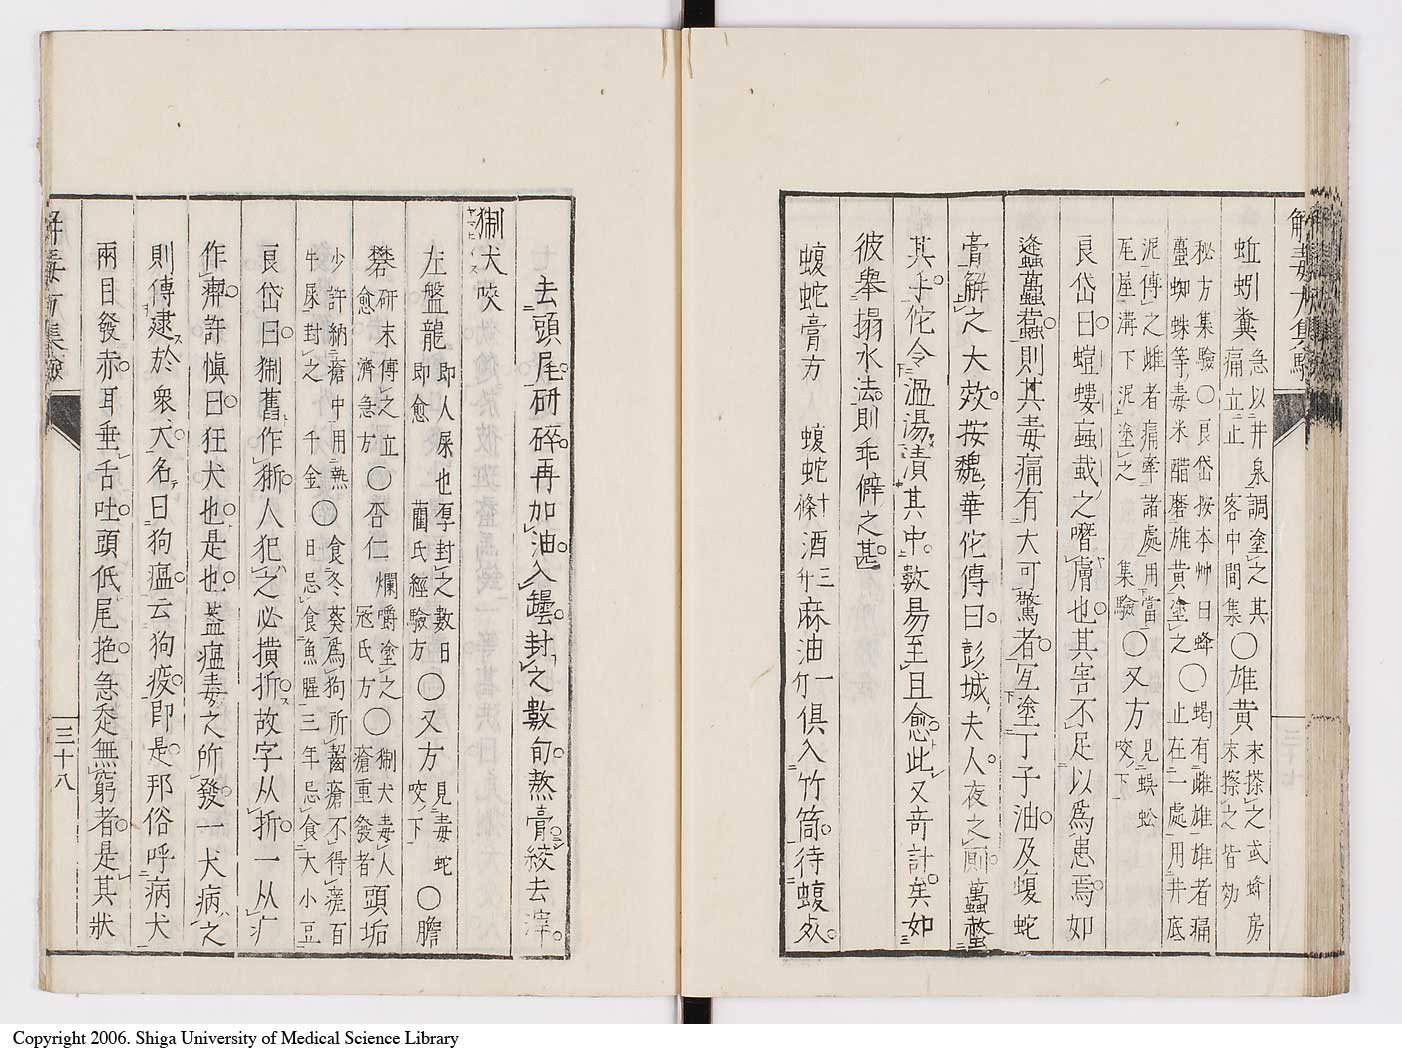 蚯蚓糞 急以井泉調塗之其痛立止 客中間集〇雄黄 末搽之或蜂房末擦之皆効
秘方集驗〇良岱按本艸曰蜂蠆蜘蛛等毒米醋磨雄黄塗之〇蝎有雌雄雄者痛止在一處用井底
泥傅之雌者痛牽諸處用當瓦屋溝下泥塗之 集驗〇又方 見蜈蚣咬下
良岱曰螘螻蝱蛓之噆膚也其害不足以為患焉如
蜂蠆蠚則其毒痛有大可驚者宜塗丁子油及蝮蛇
膏解之大效按魏華佗傳曰彭城夫人夜之廁蠆螫
其手佗令溫湯漬其中數易至且愈此又奇計矣如
彼舉搨水法則乖僻之甚
蝮蛇膏方 蝮蛇十條酒三升麻油一斤俱入竹筒待蝮女
去頭尾研碎再加油入罎封之數旬熬膏絞去滓
猘犬咬
左盤龍 即人屎也厚封之數日即愈 藺氏經驗方〇又方 見毒蛇咬下〇膽
礬 研末傅之立愈 濟急方〇杏仁 爛嚼塗之 寇氏方〇 猘犬毒人瘡重發者頭垢
少許納瘡中用熱牛屎封之 千金〇食冬葵為狗所齧瘡不得瘥百日忌食魚腥三年忌食大小豆
良岱曰猘舊作狾人犯之必撗折故字从折一从疒
作瘈許慎曰狂犬也是也蓋瘟毒之所發一犬病之
則傳逮於衆犬名曰狗瘟云狗疫即是邦俗呼病犬
兩目發赤耳垂舌吐頭低尾拖急走無窮者是其狀
三十八